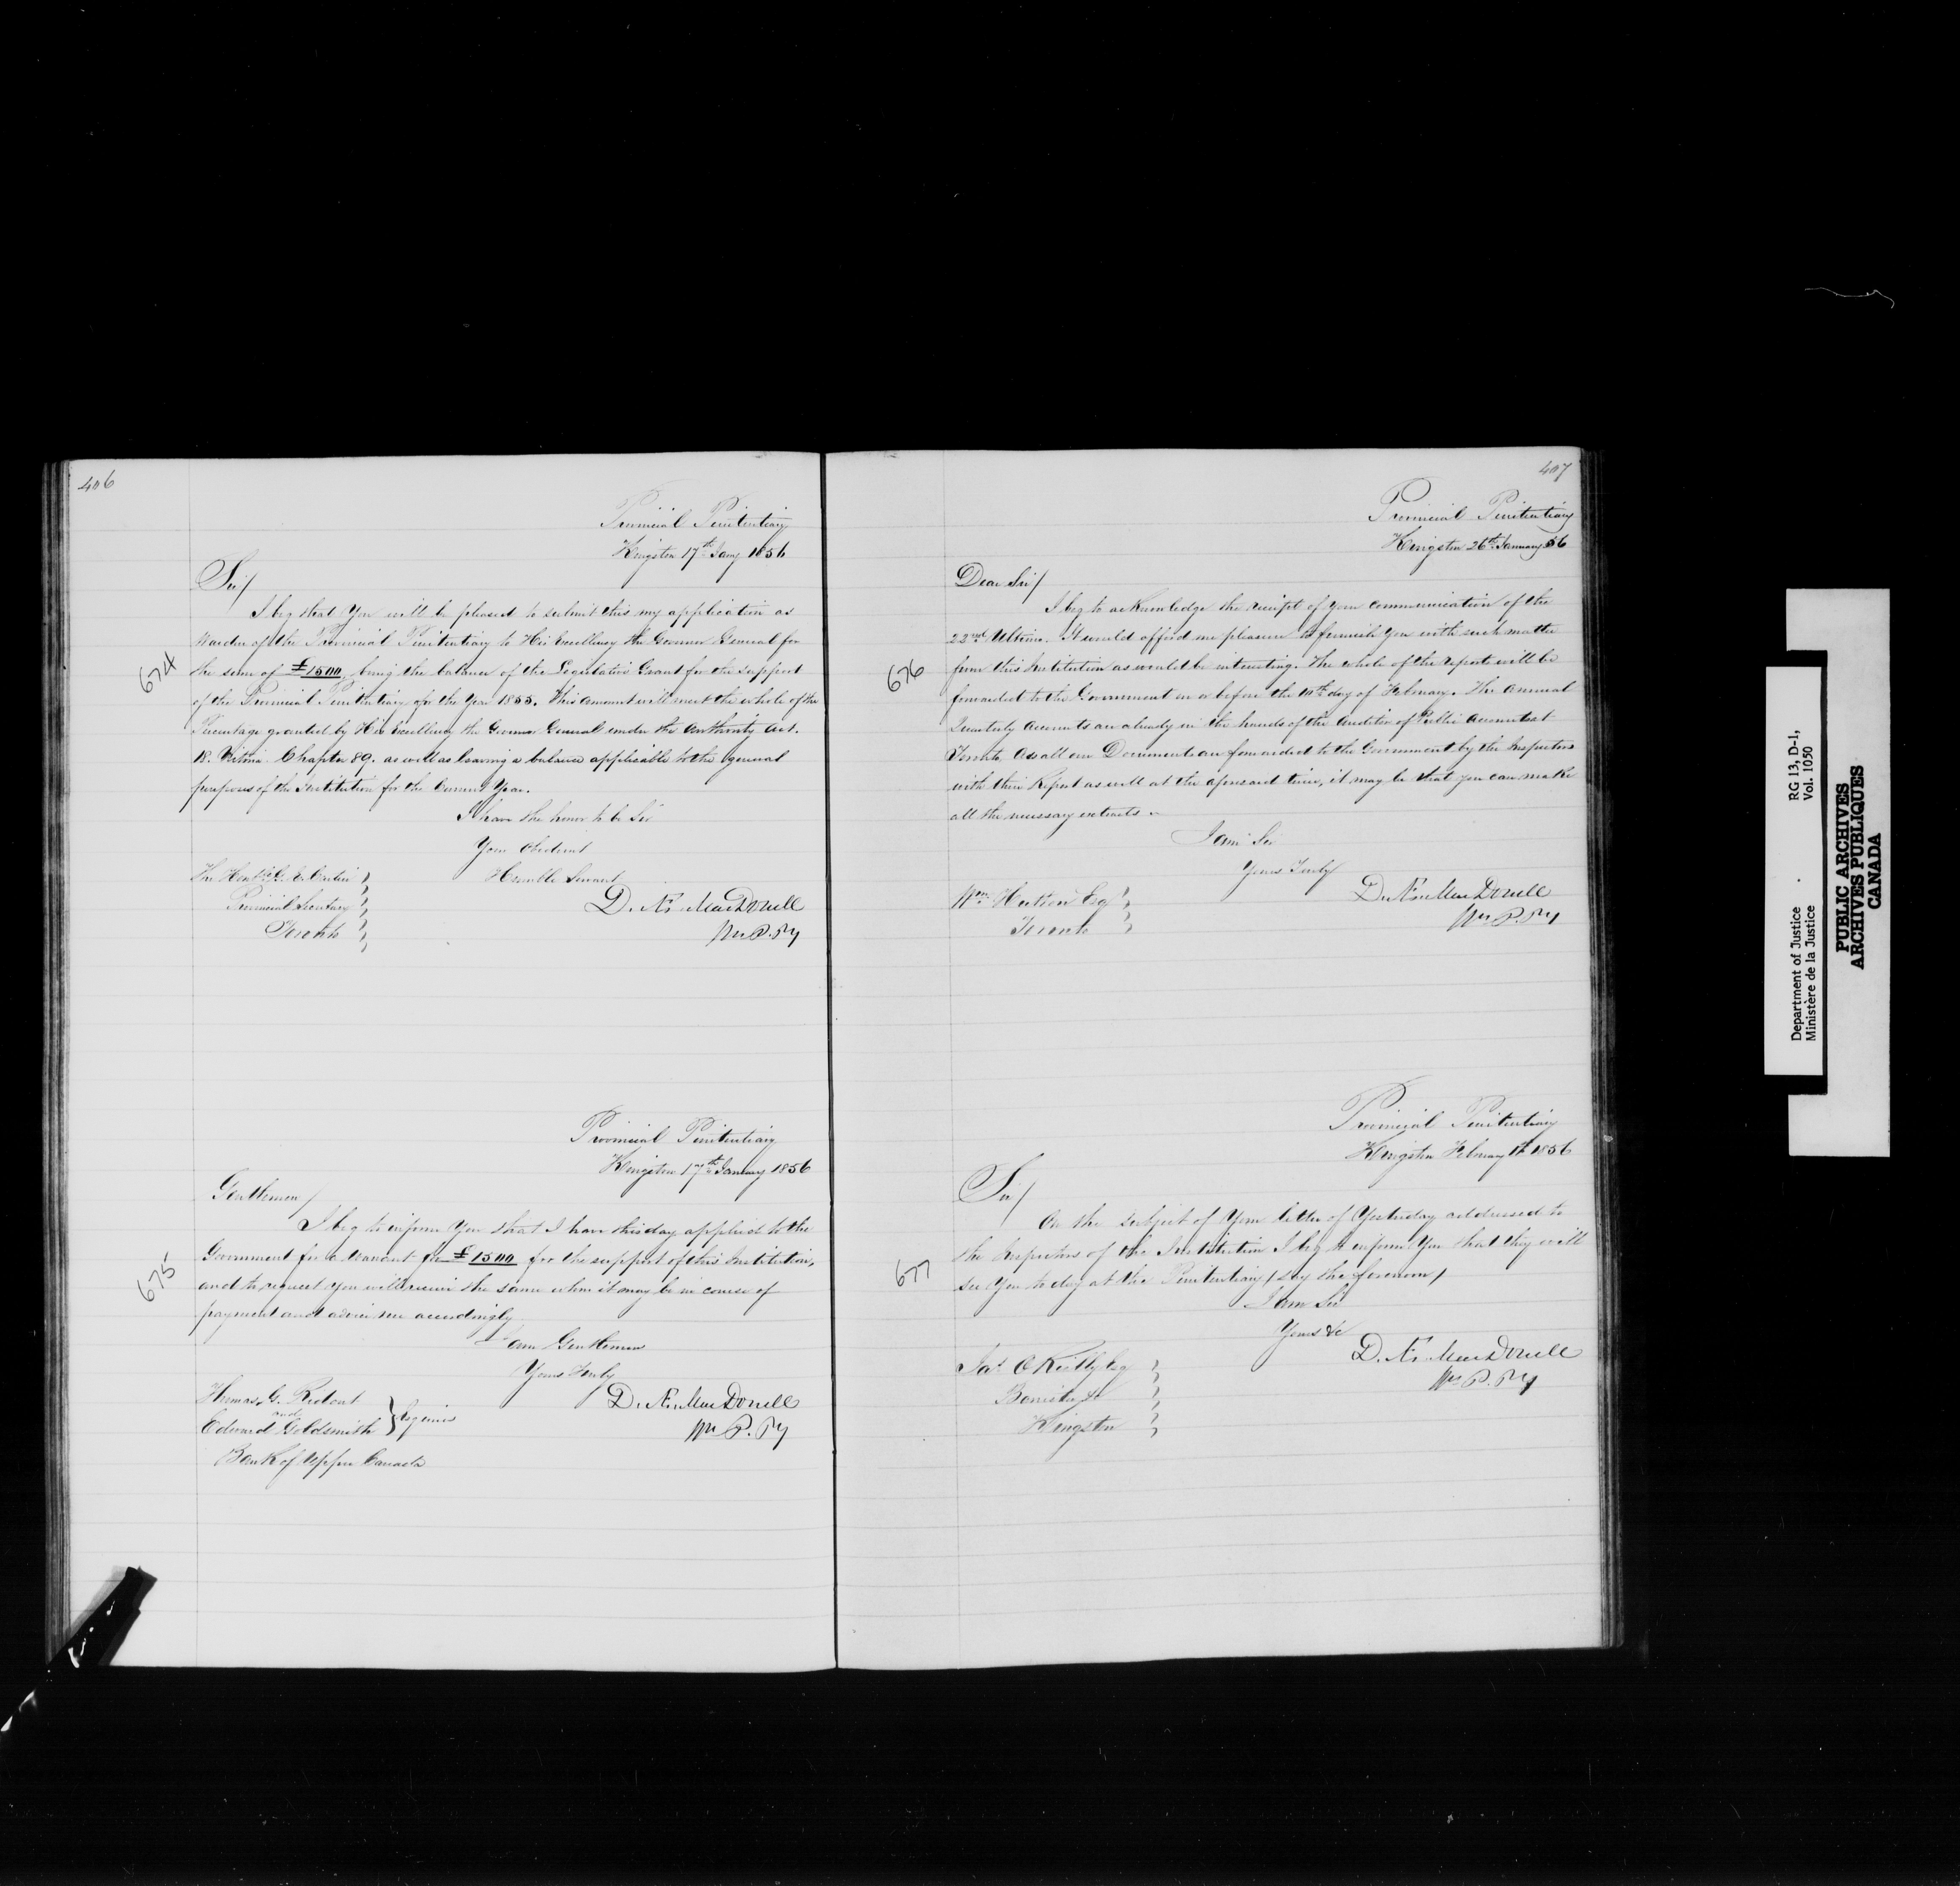 406
Provincial Penitentiary
Kingston 17th Jany 1856
Sir/
I beg that You will be pleased to submit this my application as
Warden of the Provincial Penitentiary to His Excellency the Governor General for
674
the sum of £1500 being the balance of the Legislative Grant for the support
of the Provincial Penitentiary for the Year 1855. This amount will meet the whole of the
Percentage granted by His Excellency the Governor General under the Authority Act.
18. Victoria. Chapter 89. as well as leaving a balance applicable to the general
purposes of the Institution for the Current Year.
I have the honor to be Sir
Your Obedient
Humble Servant
The Honble G. E. Cartier
Provincial Secretary
Toronto
D. Æ. MacDonell
Wn P. Py
Provincial Penitentiary
Kingston 17th January 1856
Gentlemen/
I beg to inform You that I have this day applied to the
675
Government for a Warrant for £1500 for the support of this Institution,
and to request you will receive the same when it may be in course of
payment and advise me accordingly
I am Gentlemen
Yours Truly
D. Æ. MacDonell
Wn P. Py
Thomas G. Ridout
and
Edward Goldsmith
Esquires
Bank of Upper Canada
407
Provincial Penitentiary
Kingston 26th January 56
Dear Sir/
I beg to acknowledge the receipt of your communication of the
22nd Ultimo. It would afford me pleasure to furnish You with such matter
676
from this Institution as would be interesting. The whole of the reports will be
forwarded to the Government on or before the 10th day of February. The Annual
Quarterly Accounts are already in the hands of the Auditor of Public Accounts at
Toronto. As all our Documents are forwarded to the Government by the Inspectors
with their Report as well at the aforesaid time, it may be that you can make
all the necessary extracts.
I am Sir
Yours Truly
Wm Hutton Esqr
Toronto
D. Æ. MacDonell
Wn P. Py
Provincial Penitentiary
Kingston February 1st 1856
Sir/
On the subject of Your letter of Yesterday addressed to
the Inspectors of the Institution I beg to inform You that they will
677
see You to day at the Penitentiary (say the forenoon)
I am Sir
Yours &c
D. Æ. MacDonell
Wn P. Py
Jas O'Reilly Esq
Barrister &c
Kingston
Department of Justice RG 13, D-1,
Ministère de la Justice Vol. 1050
PUBLIC ARCHIVES
ARCHIVES PUBLIQUES
CANADA